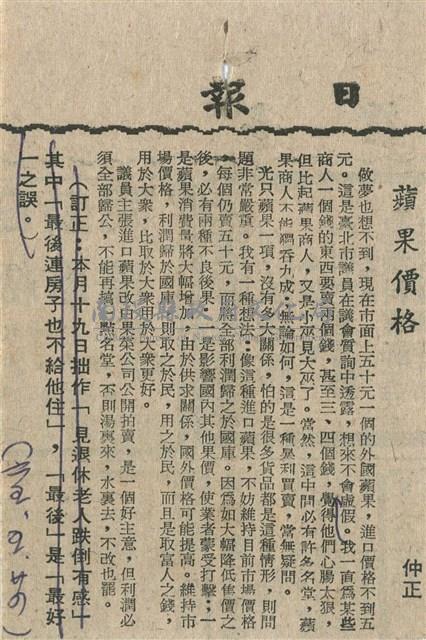 日報
蘋果價格
仲正
做夢也想不到，現在市面上五十元一個的外國蘋果，進口價格不到五
元。這是臺北市議員在議會質詢中透露，想來不會虛假。我一直爲某些
商人一個錢的東西要賣兩個錢，甚至三、四個錢，覺得他們心腸太狠，
但比起蘋果商人，又是小巫見大巫了。當然，這中間必有許多名堂，蘋
果商人不能獨吞九成；無論如何，這是一種暴利買賣，當無疑問。
光只蘋果一項，沒有多大關係，怕的是很多貨品都是這種情形，則問
題非常嚴重。我有一種想法：像這種進口蘋果，不妨維持目前市場價格
，每個仍賣五十元，而將全部利潤歸之於國庫。因爲如大幅降低售價之
後，必有兩種不良後果：一是影響國內其他果價，使業者蒙受打擊；一
是蘋果消費量將大幅增加，由於供求關係，國外價格可能提高。維持市
場價格，利潤歸於國庫，則取之於民，用之於民，而且是取富人之錢，
用於大衆，比取於大衆用於大衆更好。
議員主張進口蘋果改由果菜公司公開拍賣，是一個好主意，但利潤必
須全部歸公，不能再搞一點名堂，否則湯裏來，水裏去，不改也罷。
（訂正：本月十九日拙作「見退休老人跌倒有感」
其中「最後連房子也不給他住」，「最後」是「最好
」之誤。）